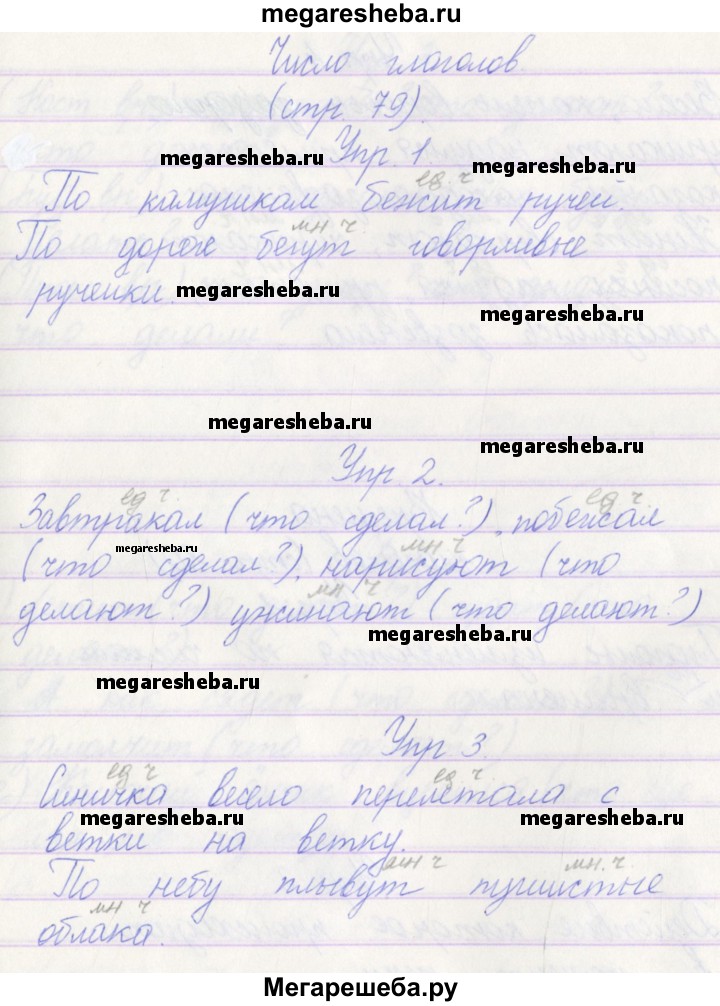 megaresheba.ru
Число глаголов.
(стр. 79).
megaresheba.ru Упр. 1 megaresheba.ru
ед. ч
По камушкам бежит ручей.
мн ч
По дороге бегут говорливые
ручейки. megaresheba.ru
megaresheba.ru
megaresheba.ru
megaresheba.ru
Упр. 2.
ед ч. ед ч.
Завтракал (что сделал?), побежал
megaresheba.ru мн ч
(что сделал?), нарисуют (что
мн ч
делают?) ужинают (что делают?)
megaresheba.ru
megaresheba.ru
Упр 3.
ед ч ед ч.
Синичка весело перелетала с
megaresheba.ru megaresheba.ru
ветки на ветку.
мн ч мн. ч.
По небу плывут пушистые
мн ч
облака.
Мегарешеба.ру